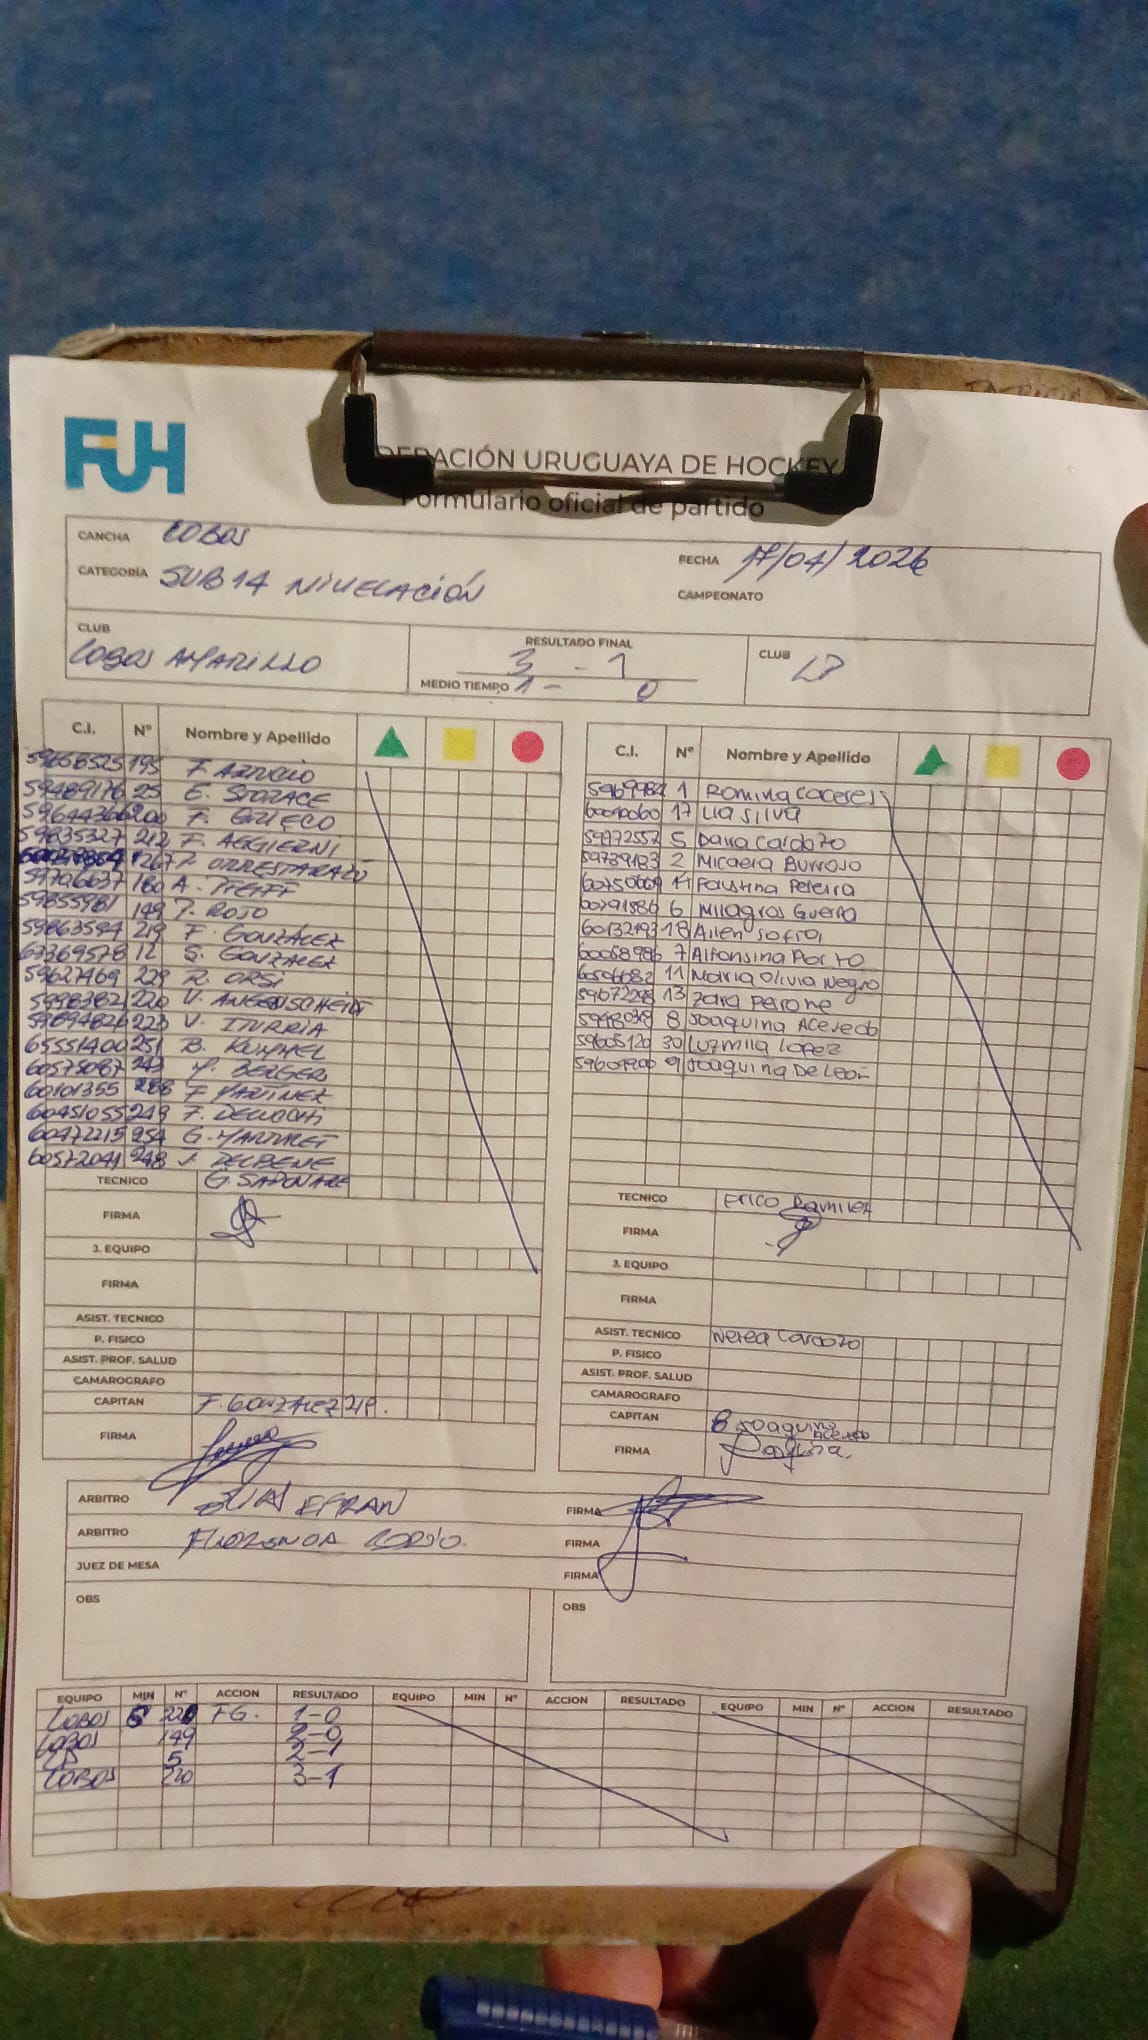 FUH
DERACIÓN URUGUAYA DE HOCKEY
Formulario oficial de partido
CANCHA LOBOS
FECHA 17/04/2026
CATEGORÍA SUB14 NIVELACIÓN
CAMPEONATO
CLUB LOBOS AMARILLO
RESULTADO FINAL 3 - 1
MEDIO TIEMPO 1 - 0
CLUB
C.I. Nº Nombre y Apellido
59658525 195
59489176 25 E. STORACE
59644366 200 F. GRIECO
59835327 212 F. AGGIERNI
126
59706037 180 A.
59855981 149 P. ROJO
59863594 219 F. GONZÁLEZ
63369578 12 S. GONZALEZ
59627469 229 R. ORSI
59983821 220 V.
59894826 223 V. ITURRIA
65551400 251 B. KUMMEL
60575087 243
60101355 288 F MARTINEZ
60451055 249 F.
60472215 254 G.
60572041 248 J. DELBENE
TECNICO G. SAPONARE
FIRMA
J. EQUIPO
FIRMA
ASIST. TECNICO
P. FISICO
ASIST. PROF. SALUD
CAMAROGRAFO
CAPITAN F. GONZALEZ 219.
FIRMA
C.I. Nº Nombre y Apellido
5969982 1 Romina Caceres
60010060 17 Lia Silva
59972557 5 Daira Cardozo
59739183 2 Micaela
60750669 14 Faustina Pereira
60791586 6 Milagros Guerra
60132193 18 Ailen Sofia
60058986 7 Alfonsina Porto
60596682 11 Maria Olivia Negro
59672298 13 Zara Perone
59980318 8 Joaquina Acevedo
59605120 30 Luzmila Lopez
59601900 9 Joaquina De León
TECNICO Erico Ramirez
FIRMA
J. EQUIPO
FIRMA
ASIST. TECNICO Nerea Cardozo
P. FISICO
ASIST. PROF. SALUD
CAMAROGRAFO
CAPITAN 8 Joaquina Acevedo
FIRMA Joaquina
ARBITRO FIRMA
ARBITRO FLORENCIA FIRMA
JUEZ DE MESA FIRMA
OBS OBS
EQUIPO MIN Nº ACCION RESULTADO EQUIPO MIN Nº ACCION RESULTADO EQUIPO MIN Nº ACCION RESULTADO
LOBOS 5 220 FG. 1-0
LOBOS 149 2-0
5 2-1
LOBOS 220 3-1